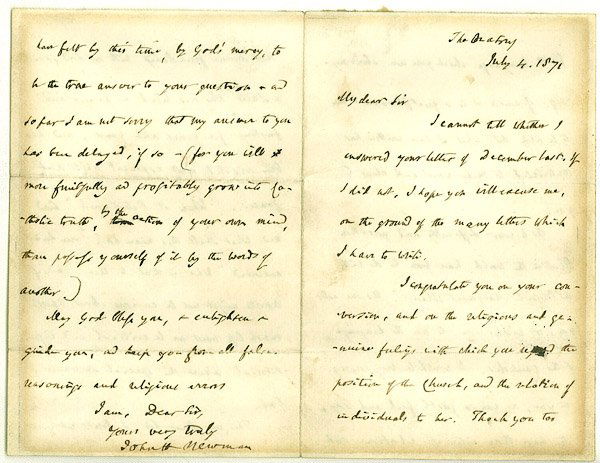 The Oratory
July 4. 1871
My dear Sir
I cannot tell whether I
answered your letter of December last. If
I did not, I hope you will excuse me,
on the ground of the many letters which
I have to write.
I congratulate you on your con-
version, and on the religious and ge-
nuine feelings with which you regard the
position of the Church, and the relation of
individuals to her. Thank you too
have felt by this time, by God's mercy, to
be the true answer to your question & ad
so far I am not sorry that my answer to you
has been delayed, if so – (for you will
more fruitfully ad profitably grow into Ca-
tholic truth, by the action of your own mind,
than possess yourself of it by the words of
another)
May God bless you, & enlighten &
guide you, ad keep you from all false
reasonings and religious errors
I am, Dear Sir,
Yours very truly
John H Newman